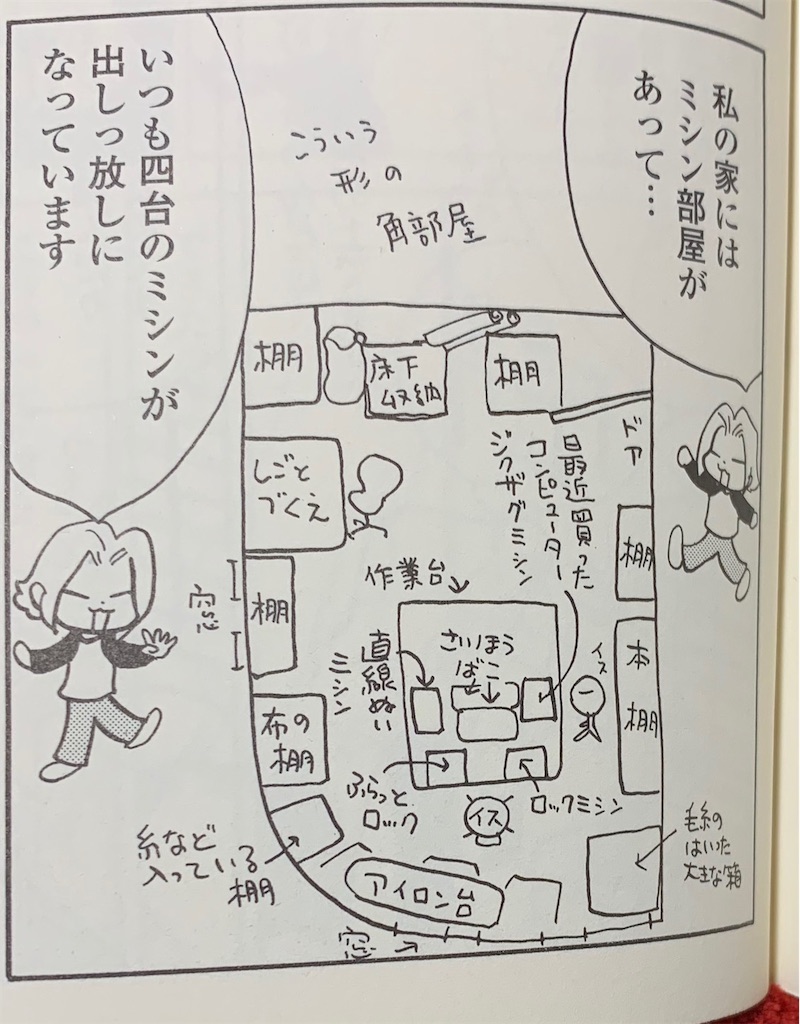 私の家には
ミシン部屋が
あって…
いつも四台のミシンが
出しっ放しに
なっています
こういう
形の
角部屋
棚
床下
収納
棚
ドア
しごと
づくえ
最近買った
コンピューター
ジグザグミシン
棚
作業台
窓
棚
直線ぬい
ミシン
さいほう
ばこ
イス
本棚
布の
棚
ふらっと
ロック
イス
ロックミシン
毛糸の
はいった
大きな箱
糸など
入っている
棚
アイロン台
窓